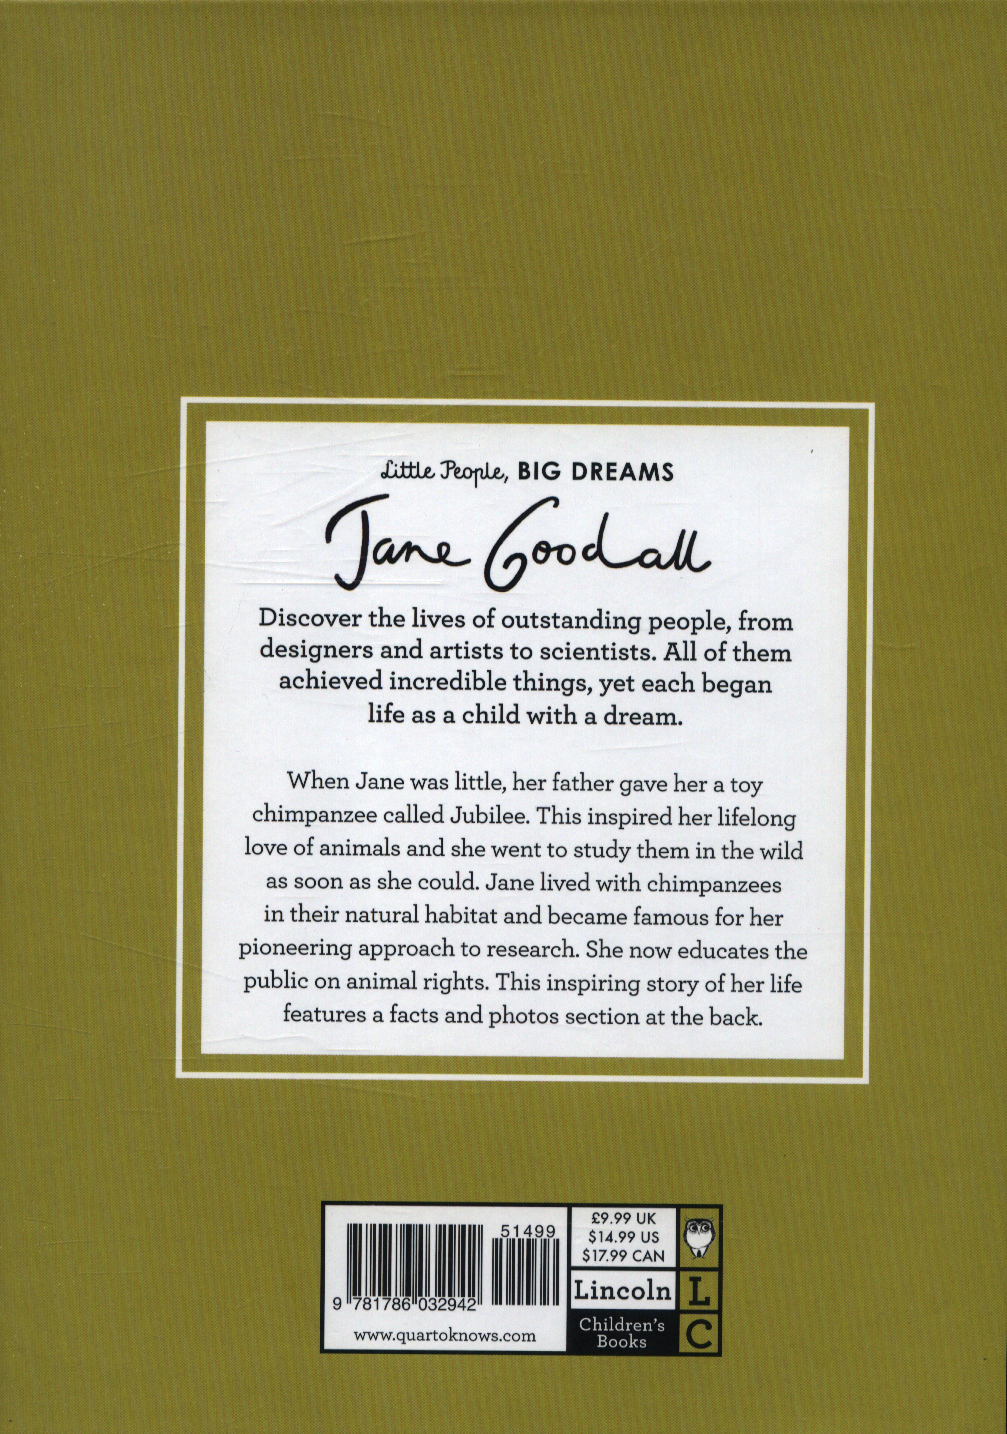 Little People, BIG DREAMS
Jane Goodall
Discover the lives of outstanding people, from
designers and artists to scientists. All of them
achieved incredible things, yet each began
life as a child with a dream.
When Jane was little, her father gave her a toy
chimpanzee called Jubilee. This inspired her lifelong
love of animals and she went to study them in the wild
as soon as she could. Jane lived with chimpanzees
in their natural habitat and became famous for her
pioneering approach to research. She now educates the
public on animal rights. This inspiring story of her life
features a facts and photos section at the back.
51499
9 781786 032942
www.quartoknows.com
£9.99 UK
$14.99 US
$17.99 CAN
Lincoln
Children's
Books
L
C